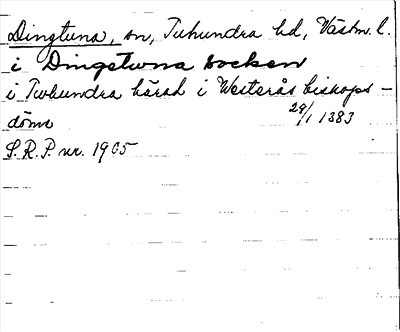 Dingtuna, sn, Tuhundra hd, Västm. l.
i Dingstuna socken
i Twhundra härad i Westerås biskops-
döme 29/1 1383
S.R.P. nr. 1905